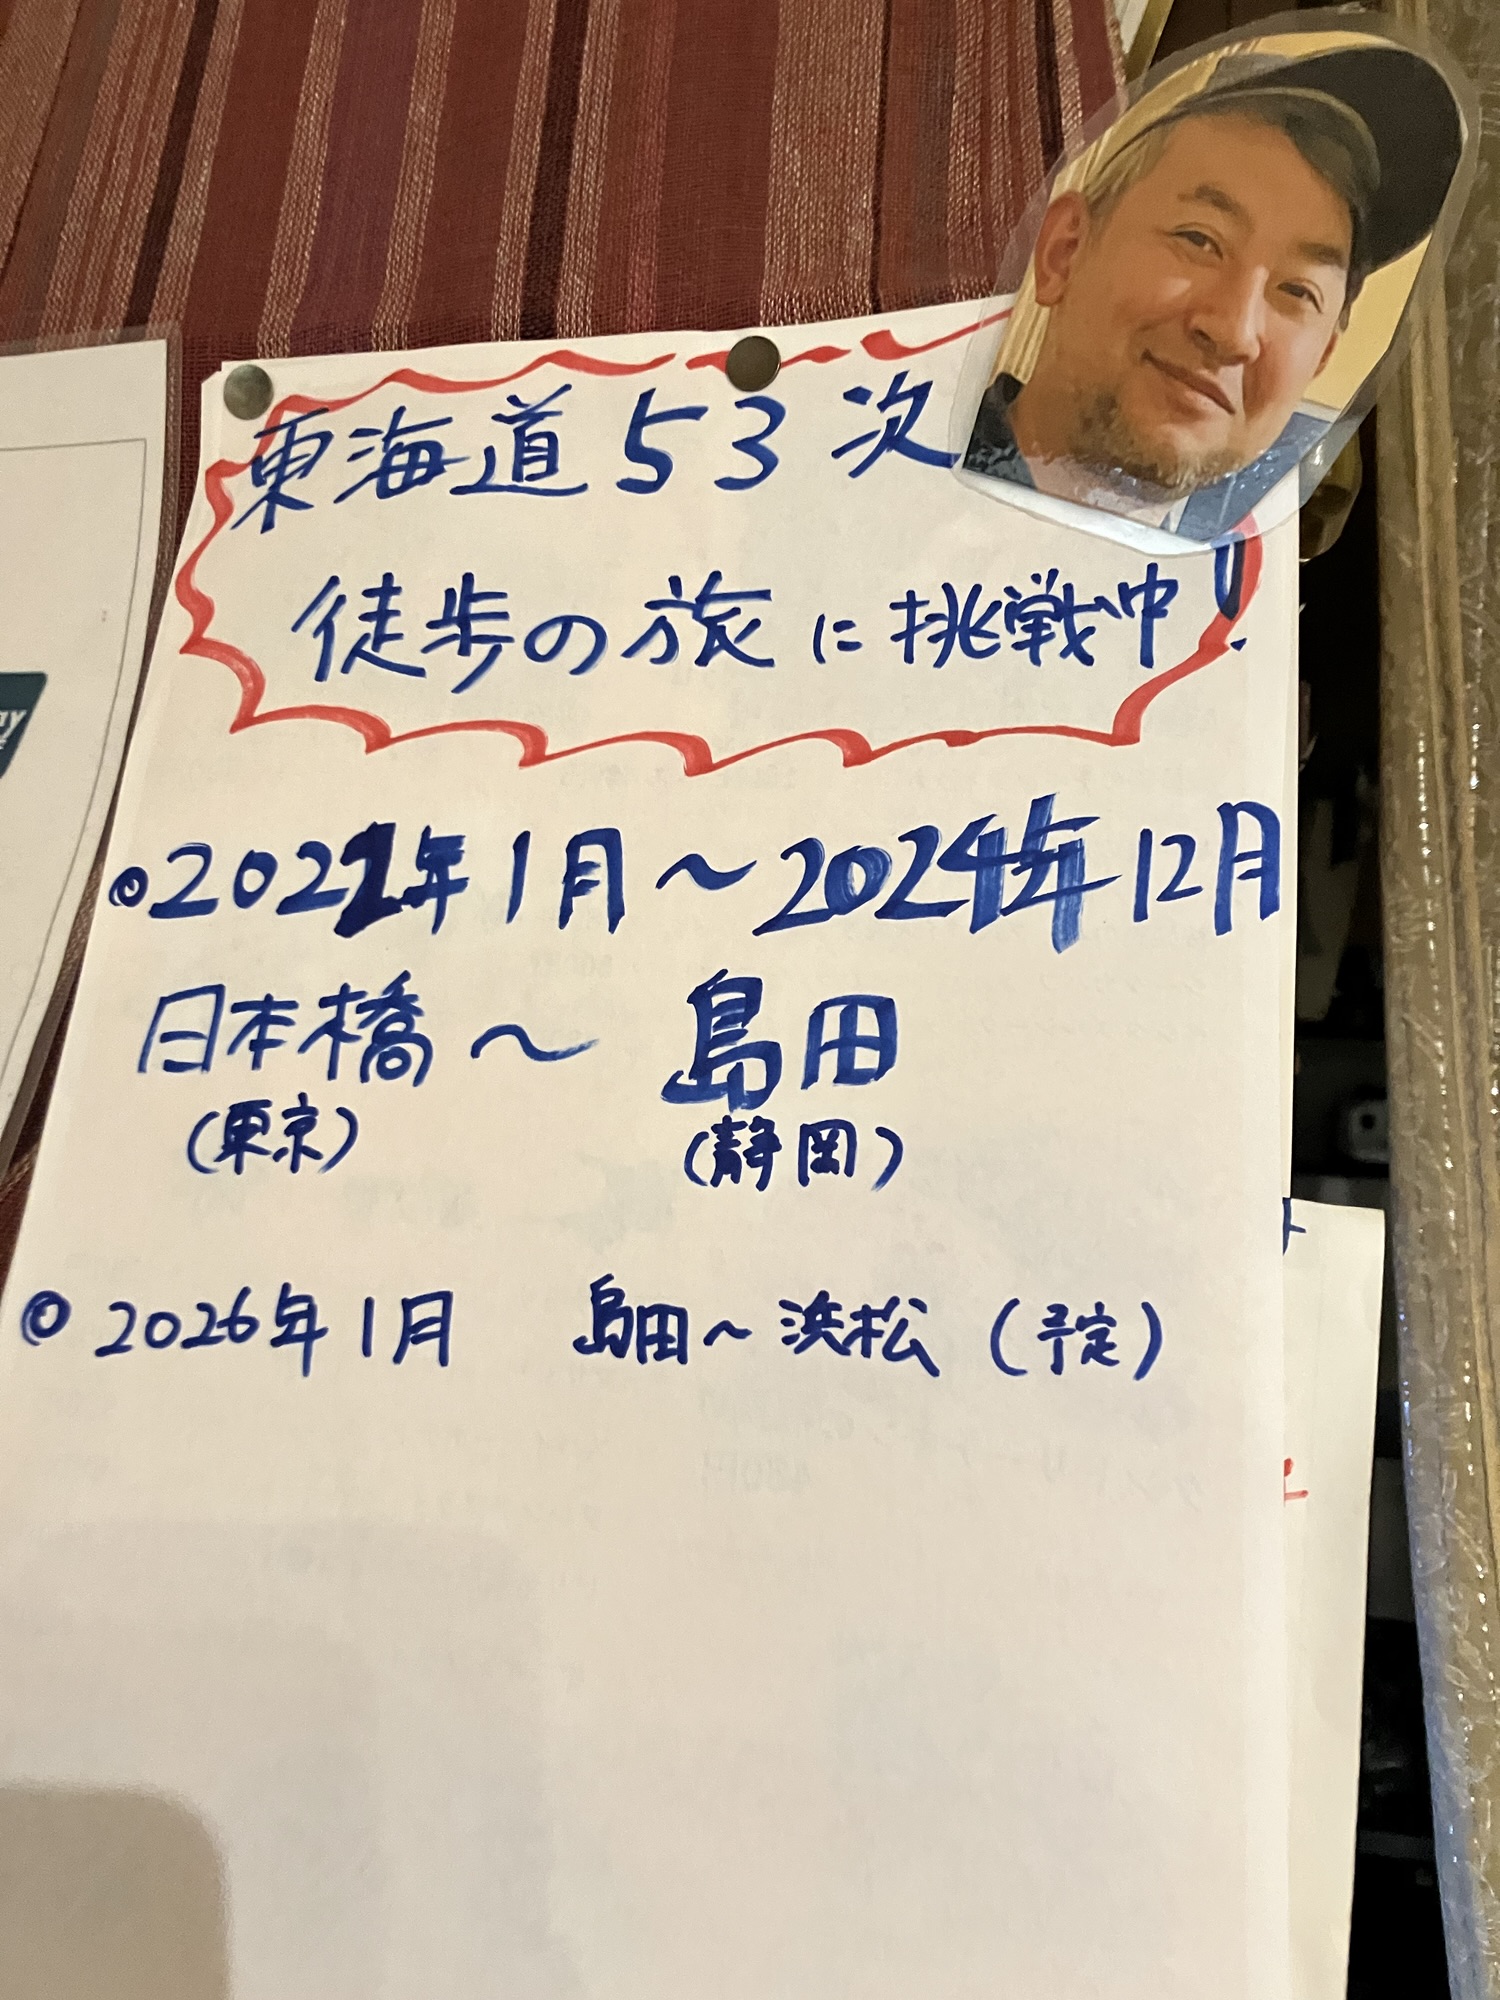 東海道53次
徒歩の旅に挑戦中!
◎2022年1月～2024年12月
日本橋～島田
(東京) (静岡)
◎2026年1月 島田～浜松(予定)